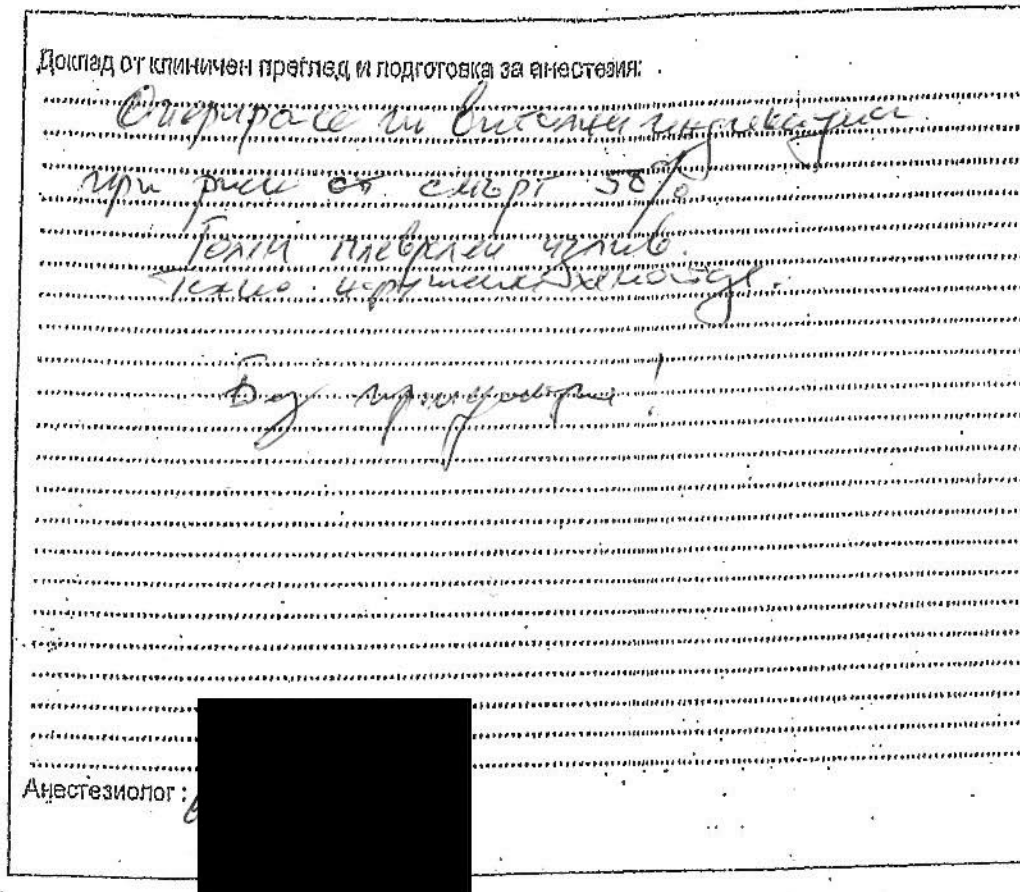 Доклад от клиничен преглед и подготовка за анестезия:
Оперира се по витални индикации
при риск от смърт 50%
Голям плеврален излив.
Тежко
Без
Анестезиолог: